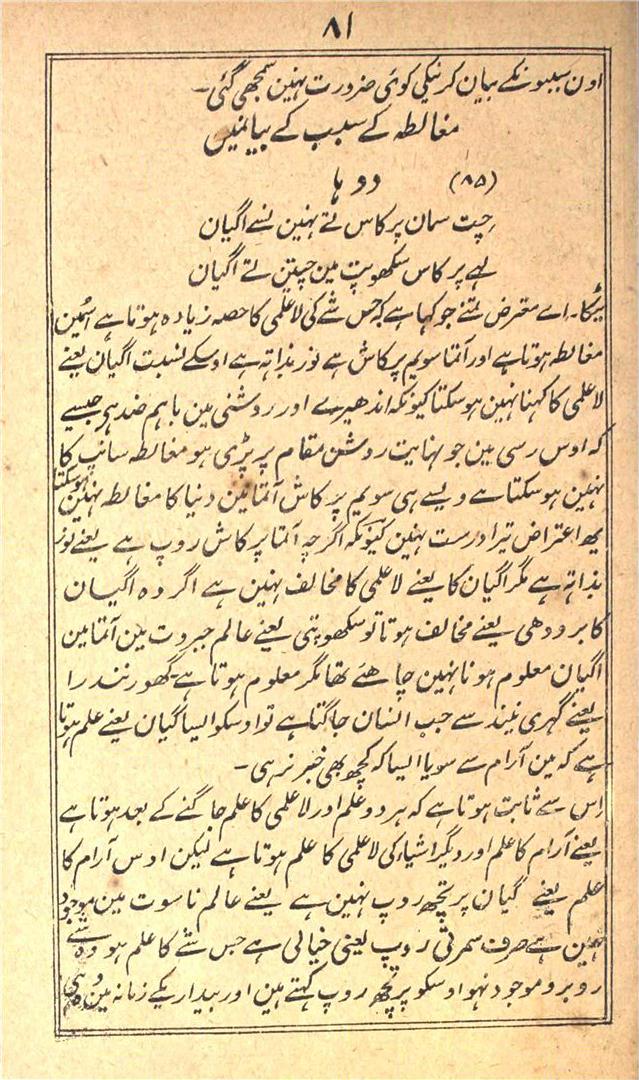 ۸۱
اون سببونکے بیان کرنیکی کوئی ضرورت نہین سمجھی گئی۔
مغالطہ کے سبب کے بیانمیں
(۸۵) دوہا
چت سمان پرکاس تے نہین نسے اگیان
لہے پرکاس سکھوپت مین چیتن تے اگیان
ٹیکا۔ اے معترض تمنے جو کہا ہے کہ جس شے کی لاعلمی کا حصہ زیادہ ہوتا ہے اسمین
مغالطہ ہوتا ہے اور آتما سویم پرکاش ہے نور بذاتہ ہے اوسکے نسبت اگیان یعنے
لاعلمی کا کہنا نہین ہو سکتا کیونکہ اندھیرے اور روشنی مین باہم ضد ہی جیسے
کہ اوس رسی مین جو نہایت روشن مقام پر پڑی ہو مغالطہ سانپ کا
نہین ہو سکتا ہے ویسے ہی سویم پرکاش آتما مین دنیا کا مغالطہ نہین ہوسکتا
یہ اعتراض تیرا درست نہین کیونکہ اگرچہ آتما پرکاش روپ ہے یعنے نور
بذاتہ ہے مگر اگیان کا یعنے لاعلمی کا مخالف نہین ہے اگر وہ اگیان
کا برودھی یعنے مخالف ہوتا تو سکھوپتی یعنے عالم جبروت مین آتما مین
اگیان معلوم ہونا نہین چاہئے تھا مگر معلوم ہوتا ہے۔ گھور نندرا
یعنے گہری نیند سے جب انسان جاگتا ہے تو اوسکو ایسا گیان یعنے علم ہوتا
ہے کہ مین آرام سے سویا ایسا کہ کچھ بھی خبر نرہی۔
اس سے ثابت ہوتا ہے کہ ہر دو علم اور لاعلمی کا علم جاگنے کے بعد ہوتا ہے
یعنے آرام کا علم اور دیگر اشیاء کی لاعلمی کا علم ہوتا ہے لیکن اوس آرام کا
علم یعنے گیان پرتچھ روپ نہین ہے یعنے عالم ناسوت مین موجود
نہین ہے صرف سمرتی روپ یعنی خیالی ہے جس شے کا علم ہو وہ شے
روبرو موجود نہو اوسکو پرتچھ روپ کہتے ہین اور بیداریکے زمانہ مین وہی